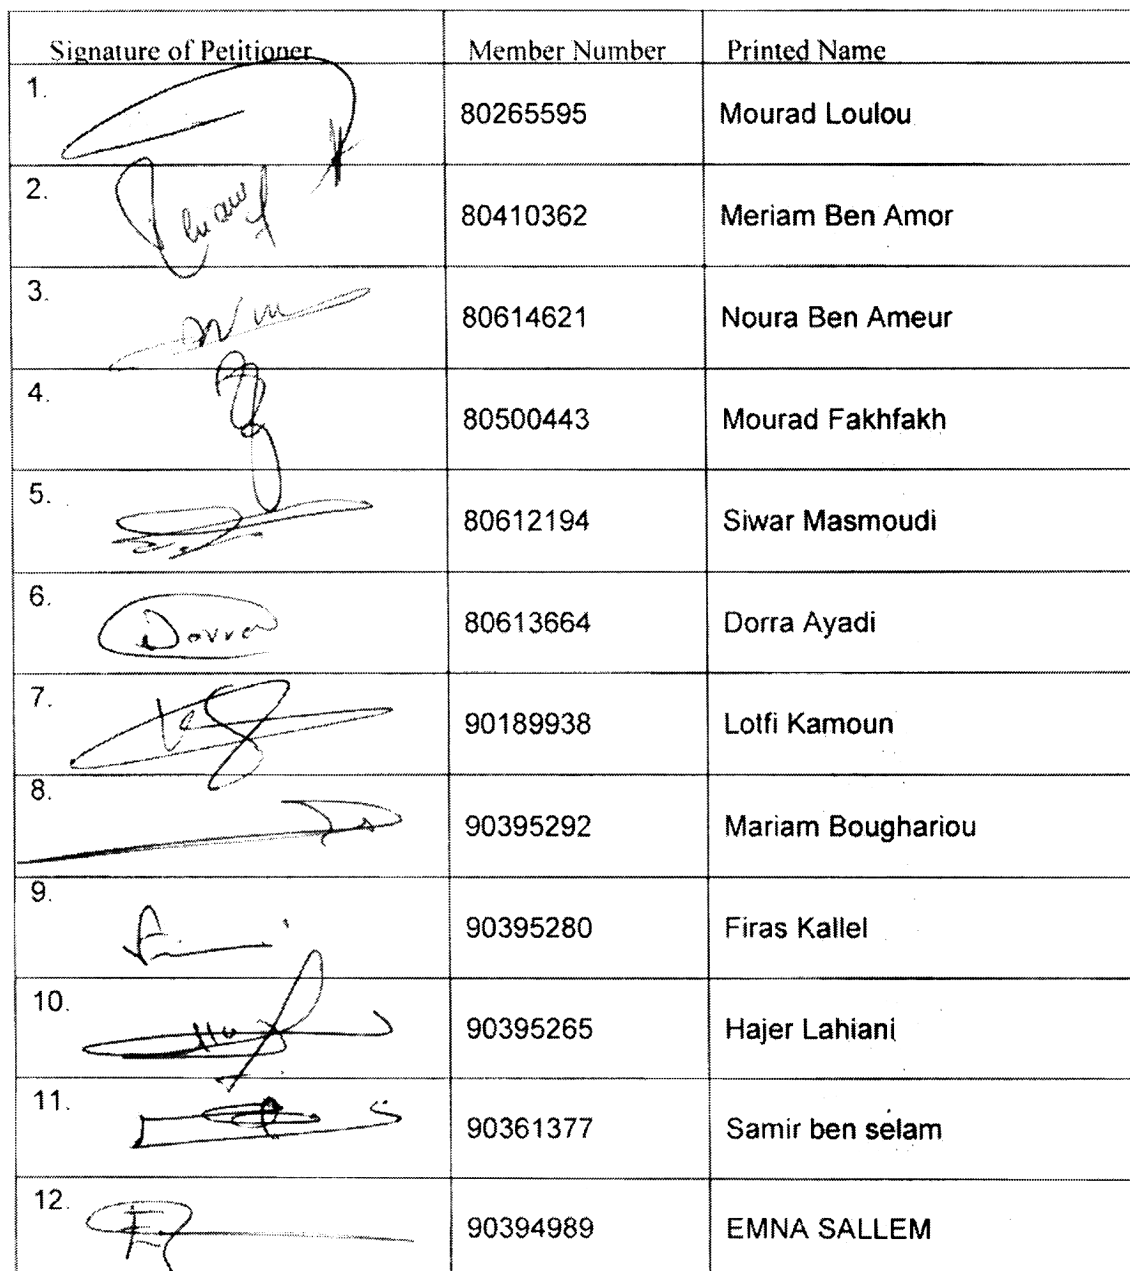 Signature of Petitioner Member Number Printed Name
1. 80265595 Mourad Loulou
2. 80410362 Meriam Ben Amor
3. 80614621 Noura Ben Ameur
4. 80500443 Mourad Fakhfakh
5. 80612194 Siwar Masmoudi
6. Dorra 80613664 Dorra Ayadi
7. 90189938 Lotfi Kamoun
8. 90395292 Mariam Boughariou
9. 90395280 Firas Kallel
10. 90395265 Hajer Lahiani
11. 90361377 Samir ben selam
12. 90394989 EMNA SALLEM